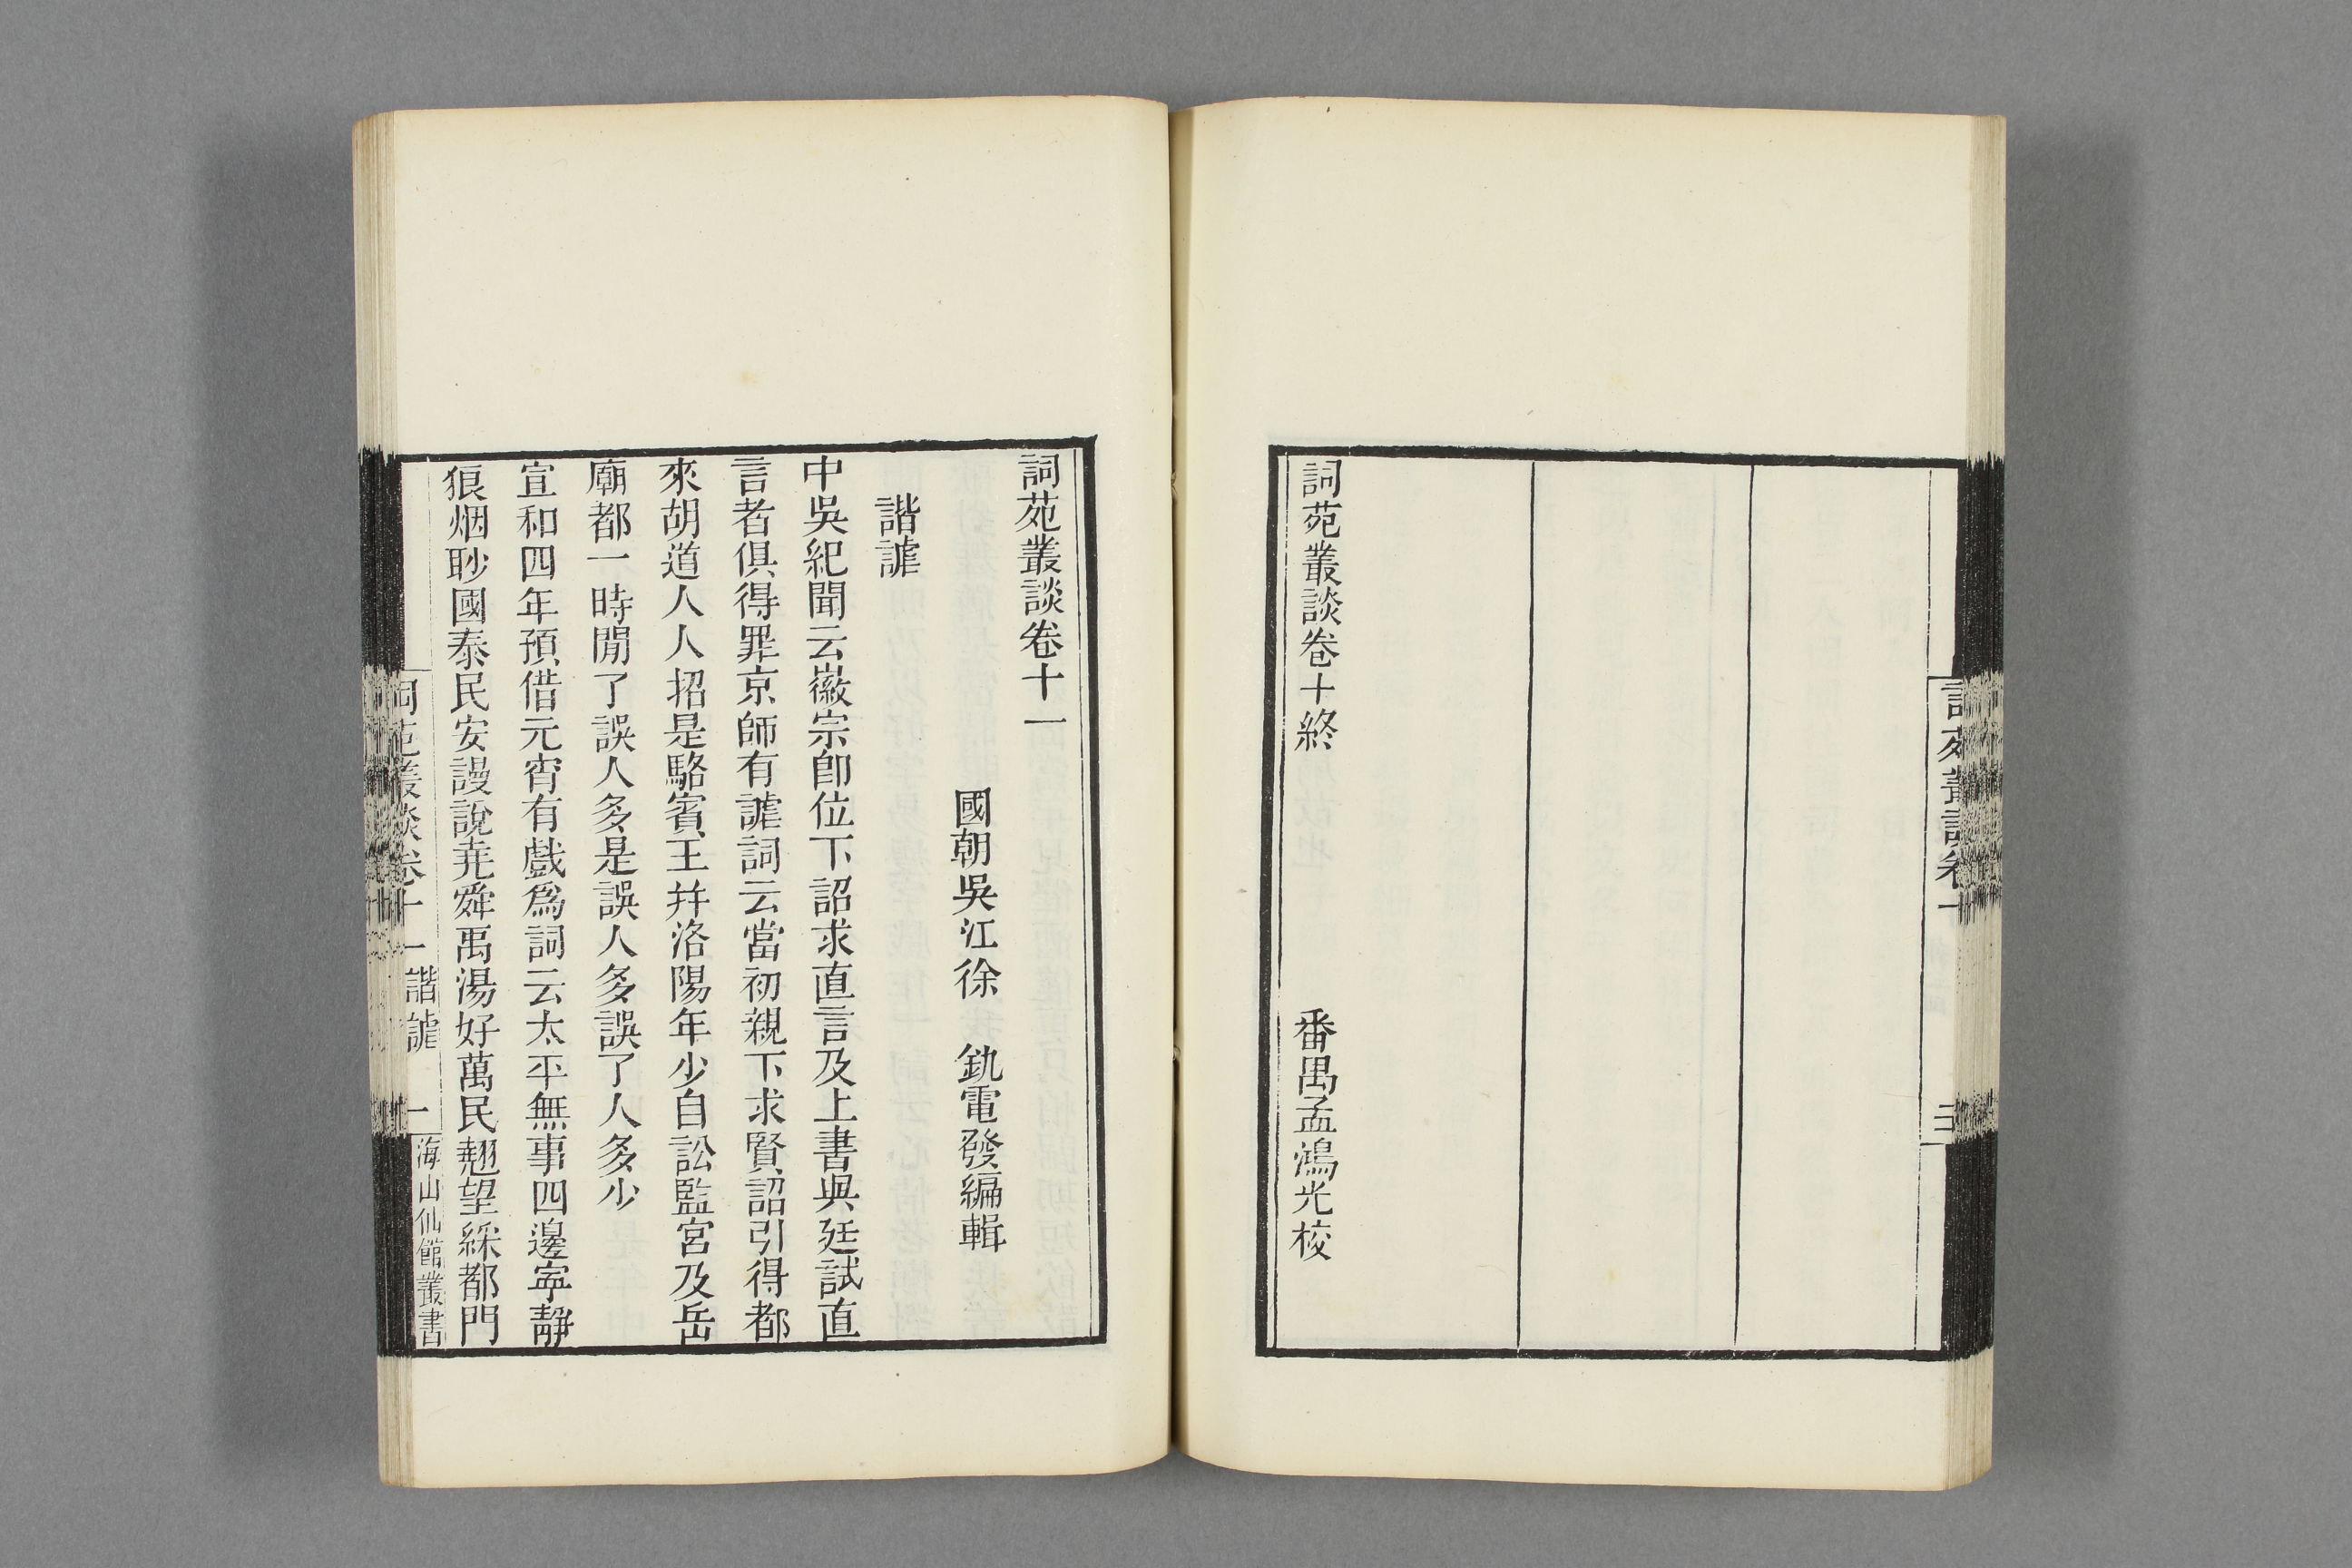 詞苑叢談卷十終
番禺孟鴻光校
詞苑叢談卷十一
國朝吳江徐 釚電發編輯
諧謔
中吳紀聞云徽宗卽位下詔求直言及上書與廷試直
言者俱得罪京師有謔詞云當初親下求賢詔引得都
來胡道人人招是駱賓王幷洛陽年少自訟監宮及岳
廟都一時閒了誤人多是誤人多誤了人多少
宣和四年預借元宵有戲爲詞云太平無事四邊寧靜
狼烟眇國泰民安謾說堯舜禹湯好萬民翹望綵都門
詞苑叢談卷十一 諧謔 一 海山仙館叢書